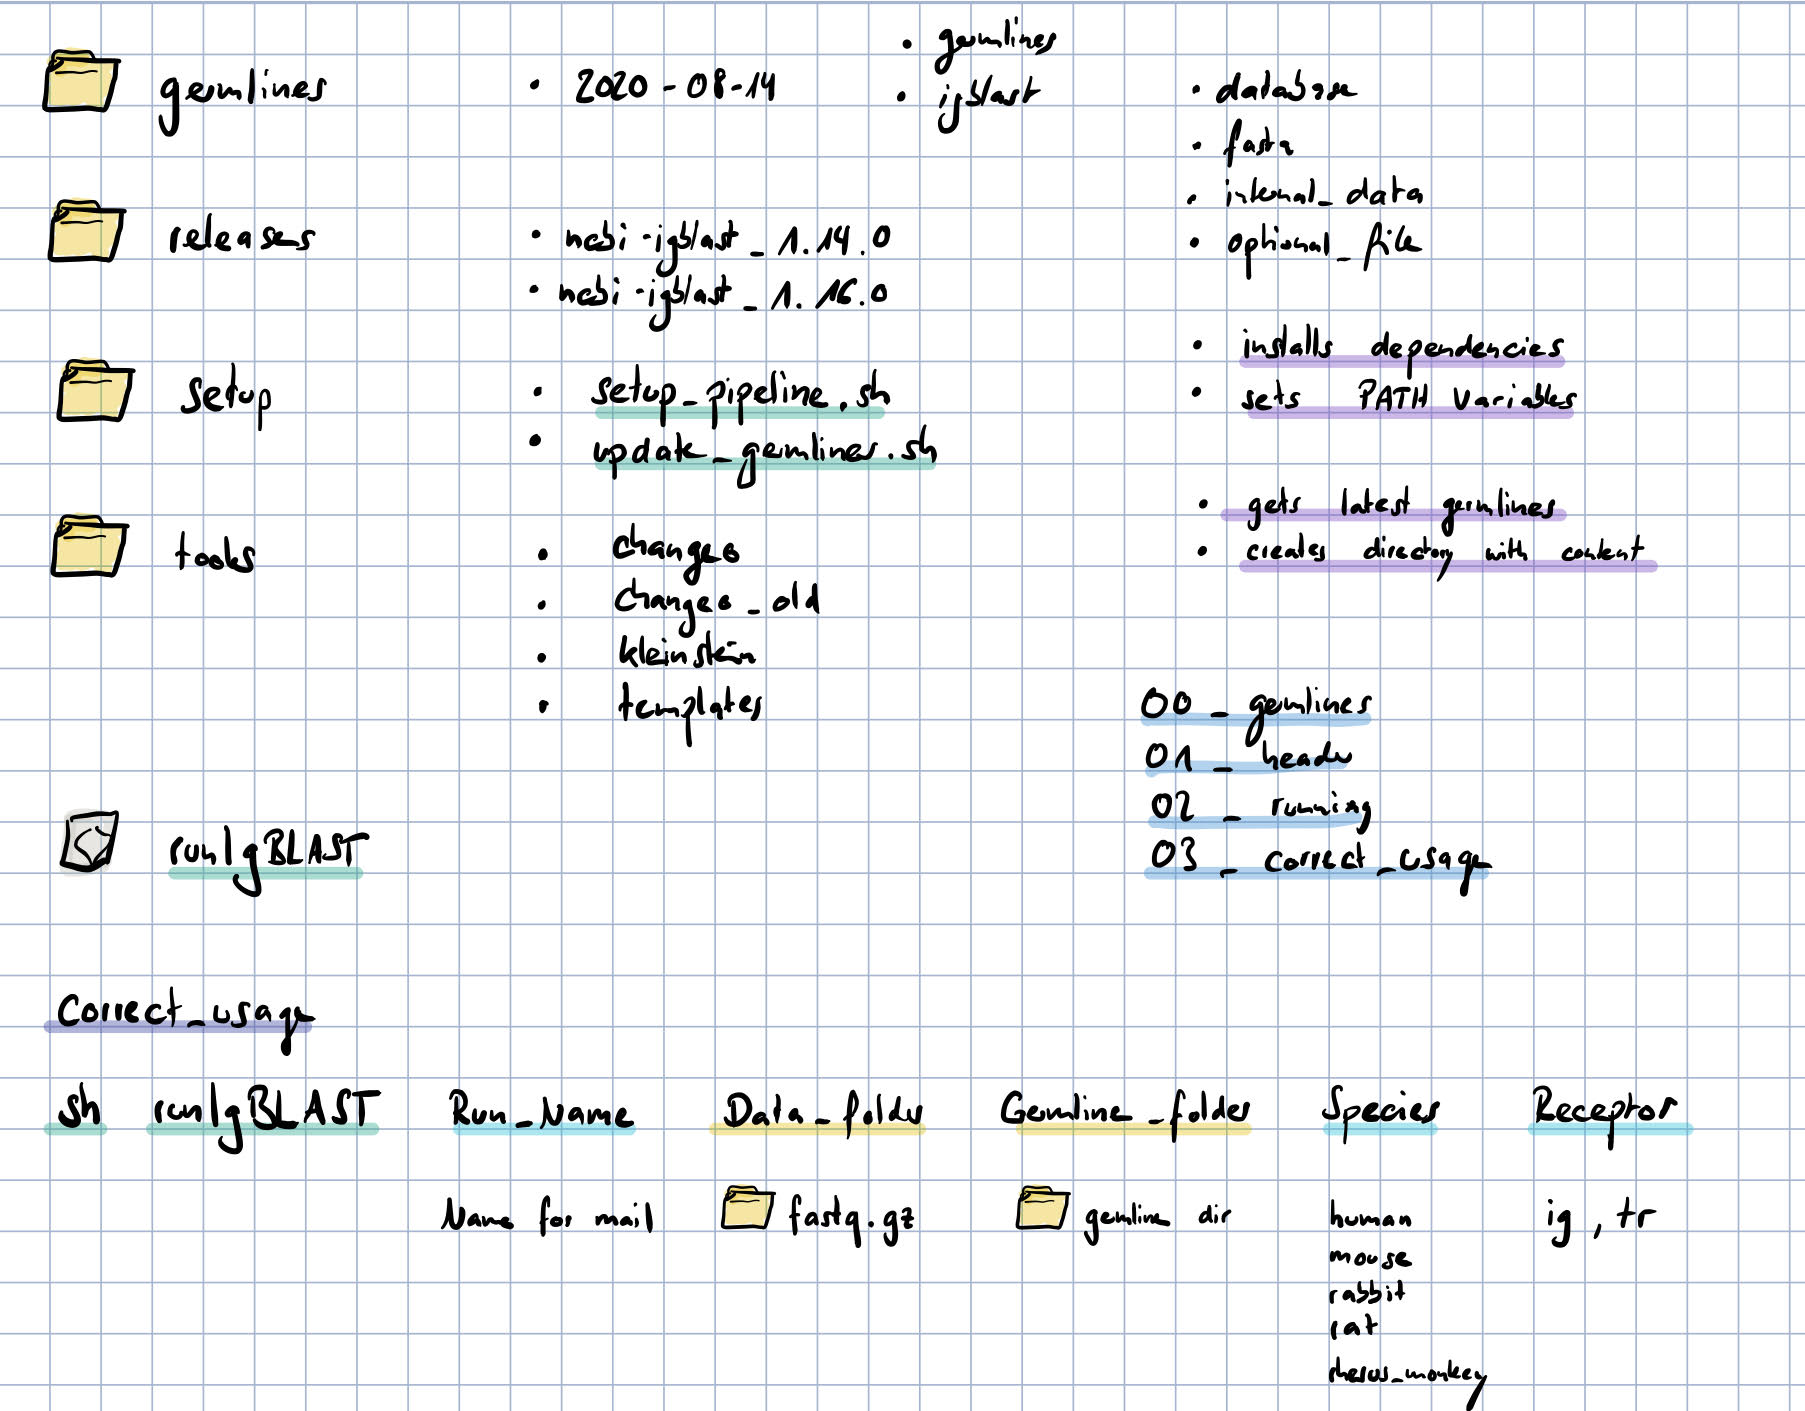 germlines
• 2020-08-14
• germlines
• igblast
• database
• fasta
• internal_data
• optional_file
releases
• ncbi-igblast_1.14.0
• ncbi-igblast_1.16.0
setup
• setup_pipeline.sh
• update_germlines.sh
• installs dependencies
• sets PATH Variables
• gets latest germlines
• creates directory with content
tools
• changeo
• changeo_old
• kleinstein
• templates
00_germlines
01_header
02_running
03_correct_usage
runIgBLAST
Correct_usage
sh runIgBLAST Run_Name Data_folder Germline_folder Species Receptor
Name for mail fastq.gz germline dir human ig, tr
mouse
rabbit
rat
rhesus_monkey